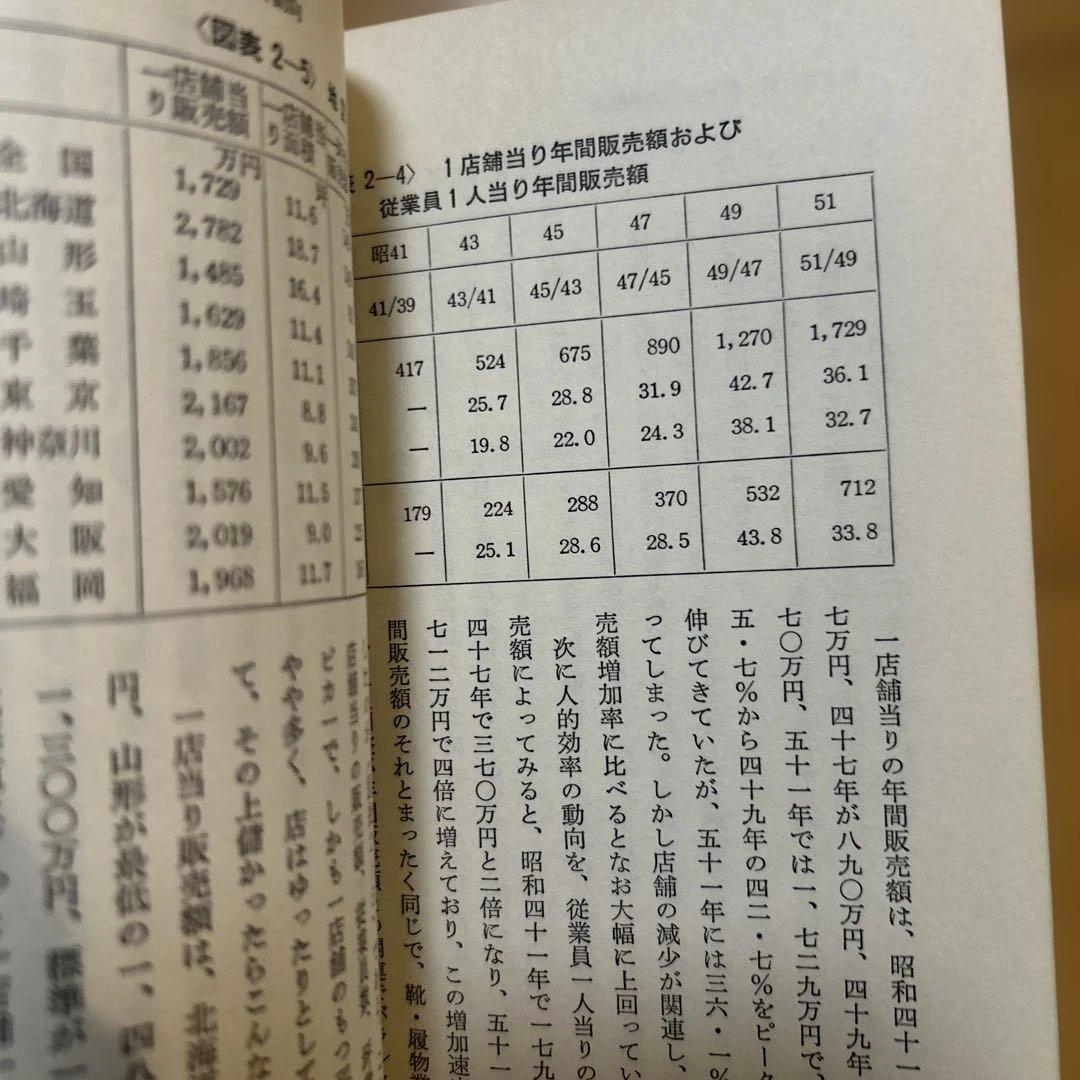 〈図表 2―5〉
一店舗当り販売額
一店舗当り面積
全国 万円 1,729 坪 11.6
北海道 2,782 18.7
山形 1,485 16.4
埼玉 1,629 11.4
千葉 1,856 11.1
東京 2,167 8.8
神奈川 2,002 9.6
愛知 1,576 11.5
大阪 2,019 9.0
福岡 1,968 11.7
一店当り販売額は、北海
円、山形が最低の一、四八
一、三〇〇万円、標準が一
て、その上儲かったらこんな
やや多く、店はゆったりとして
ピカ一で、しかも一店舗のもつ商
表 2―4〉 1店舗当り年間販売額および
従業員1人当り年間販売額
昭41 43 45 47 49 51
41/39 43/41 45/43 47/45 49/47 51/49
417 524 675 890 1,270 1,729
― 25.7 28.8 31.9 42.7 36.1
― 19.8 22.0 24.3 38.1 32.7
179 224 288 370 532 712
― 25.1 28.6 28.5 43.8 33.8
一店舗当りの年間販売額は、昭和四十一
七万円、四十七年が八九〇万円、四十九年
七〇万円、五十一年では一、七二九万円で、
五・七％から四十九年の四二・七％をピーク
伸びてきていたが、五十一年には三六・一％
ってしまった。しかし店舗の減少が関連し、
売額増加率に比べるとなお大幅に上回ってい
次に人的効率の動向を、従業員一人当りの
売額によってみると、昭和四十一年で一七九
四十七年で三七〇万円と二倍になり、五十一
七一二万円で四倍に増えており、この増加速
間販売額のそれとまったく同じで、靴・履物業